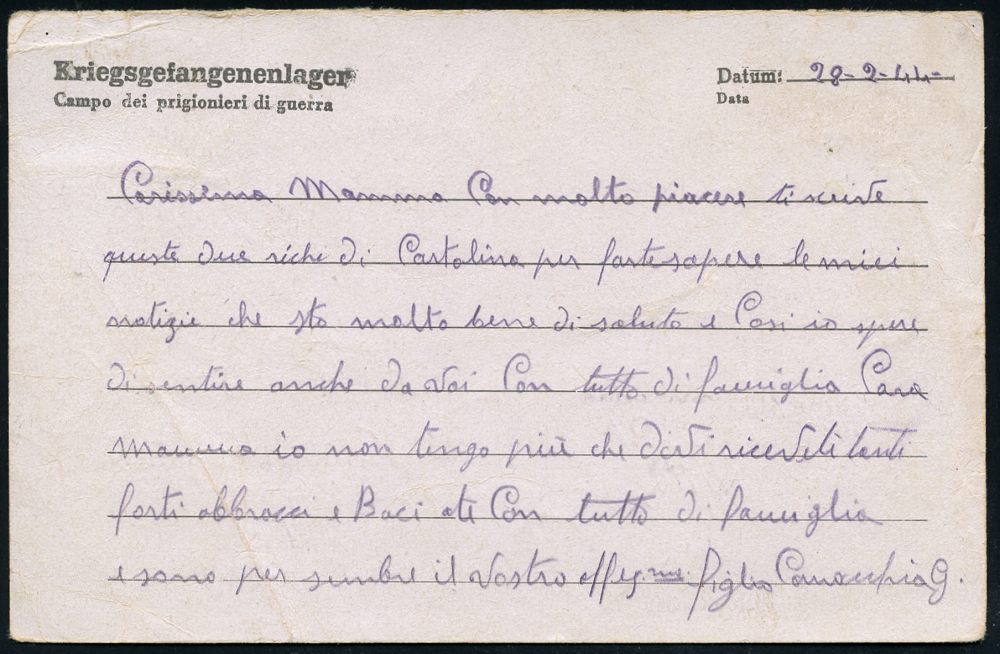 Kriegsgefangenenlager
Campo dei prigionieri di guerra
Datum: 28-2-44-
Data
Carissema Mamma Con molto piacere ti scrive
queste due riche di Cartolina per farte sapere le miei
notizie che sto molto bene di saluto e Cosi io spere
di sentire anche da voi Con tutto di famiglia Cara
mamma io non tengo più che dirvi riceveti tanti
forti abbracci e Baci ate Con tutto di famiglia
e sono per sembre il vostro affez.mo figlio G.